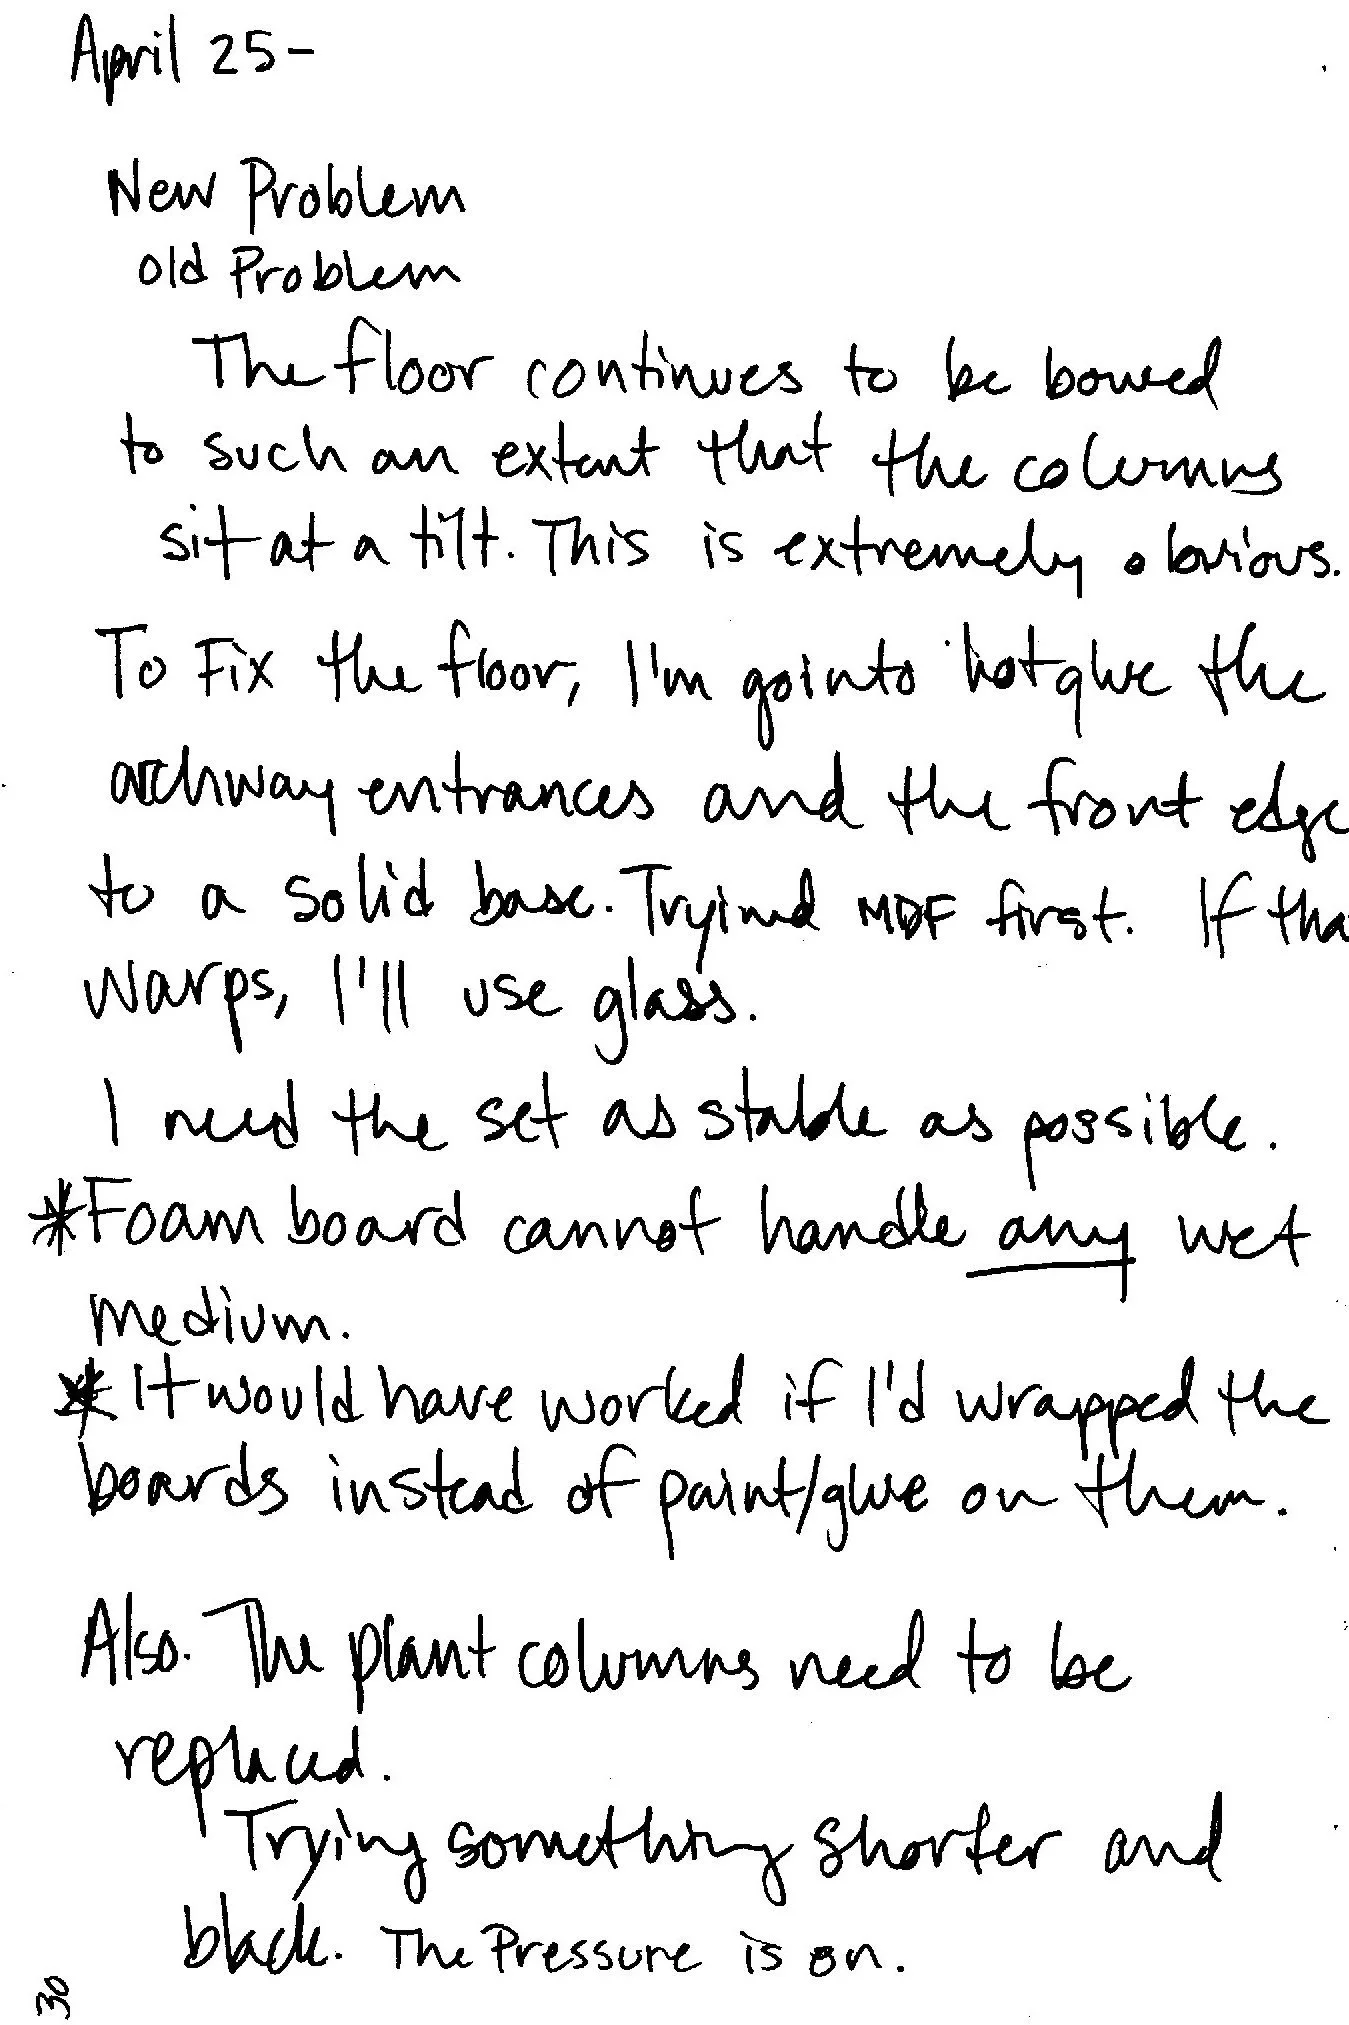 April 25-
New Problem
old Problem
The floor continues to be bowed
to such an extent that the columns
sit at a tilt. This is extremely obvious.
To Fix the floor, I'm gointo hot glue the
archway entrances and the front edge
to a solid base. Tryind MDF first. If tha
warps, I'll use glass.
I need the set as stable as possible.
*Foam board cannot handle any wet
medium.
*It would have worked if I'd wrapped the
boards instead of paint/glue on them.
Also. The plant columns need to be
replaced.
Trying something shorter and
black. The Pressure is on.
30